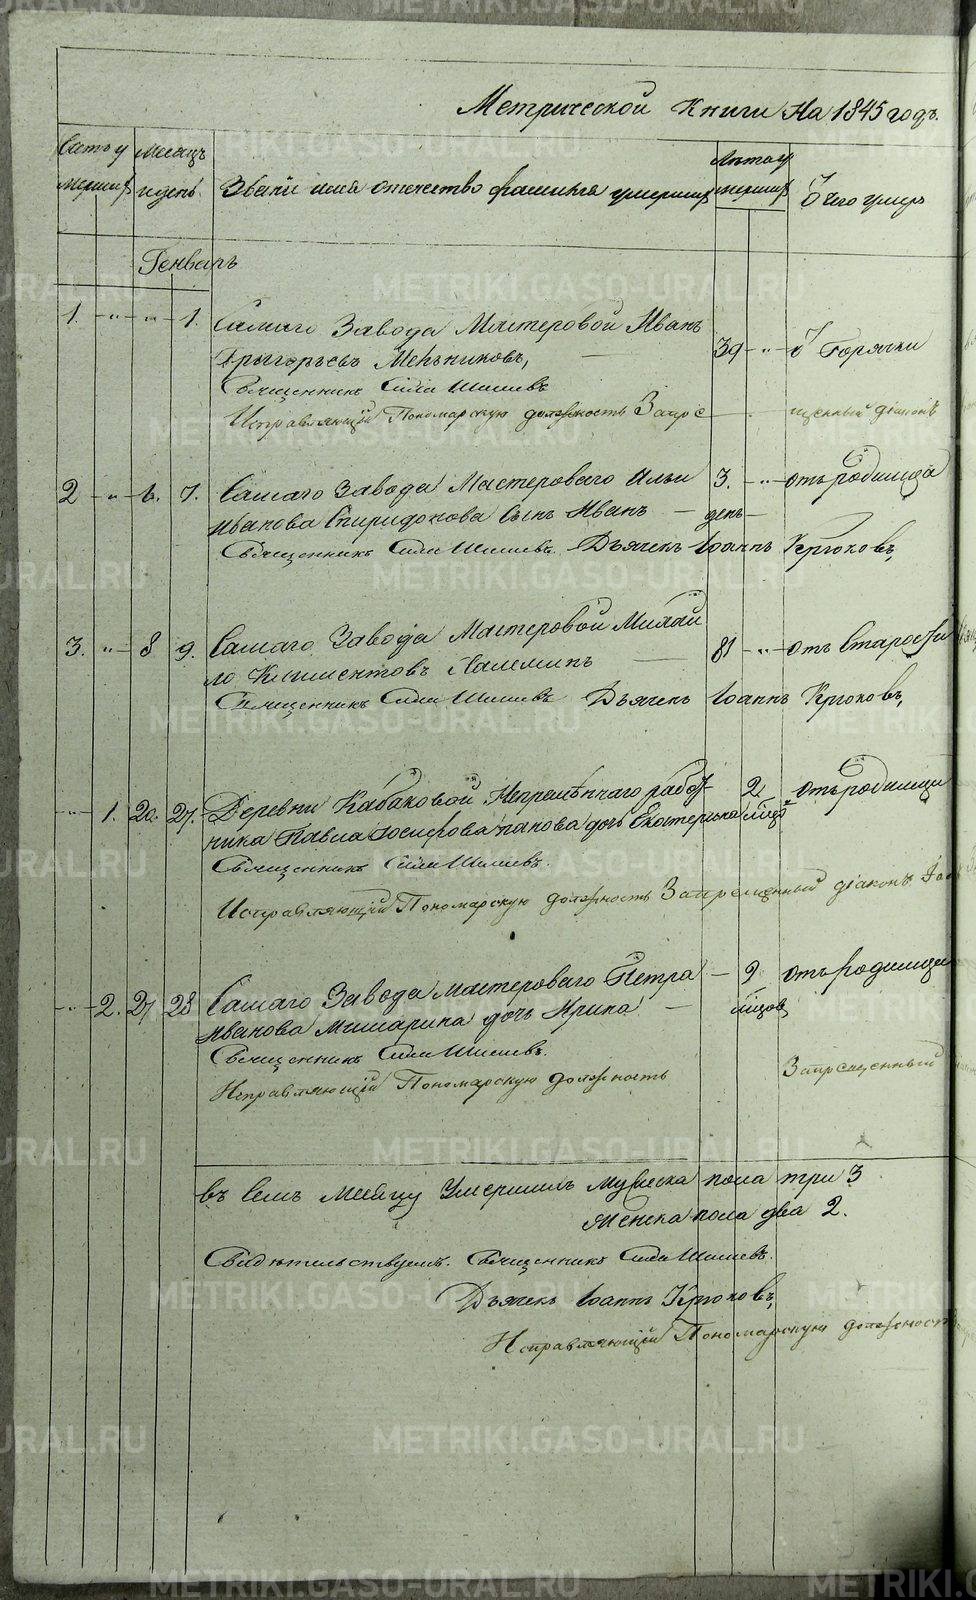 Метрической Книги На 1845 годъ.
Счетъ умерших
Месяцъ и день.
Званiи имя отечество фамилiя умерших
Лета умерших
Отчего умеръ
Генварь
1. -"- -"- 1. Самаго Завода Мастеровой Иванъ 39 -"- Отъ Горячки
Григорьевъ Меньниковъ,
Священникъ Сила Шишевъ
Исправляющiй Пономарскую должность Запрещенный дiаконъ
2 -"- 6. 7. Самаго Завода Мастероваго Ильи 3. -"- отъ родимца
Иванова Спиридонова сынъ Иванъ - день -
Священникъ Сила Шишевъ. Дьячекъ Iоаннъ Крюковъ,
3. -"- 8 9. Самаго Завода Мастеровой Михай 81 -"- отъ Старости
ло Климентовъ
Священникъ Сила Шишевъ Дьячекъ Iоаннъ Крюковъ,
-"- 1. 20. 21. Деревни Кабаковой Непременнаго работ- 2 отъ родимца
ника Павла Iосифова Панова дочь Екатерина мцъ
Священникъ Сила Шишевъ.
Исправляющiй Пономарскую должность Запрещенный дiаконъ
-"- 2. 27 28 Самаго Завода мастероваго Петра - 9 отъ родимца
Иванова Мишарина дочь Ирина - мцов
Священникъ Сила Шишевъ.
Исправляющiй Пономарскую должность Запрещенный
въ семъ месяцу Умершихъ мужеска пола три 3
женска пола два 2.
Свидетельствуемъ. Священникъ Сила Шишевъ.
Дьячекъ Iоаннъ Крюковъ,
Исправляющiй Пономарскую должность
METRIKI.GASO-URAL.RU